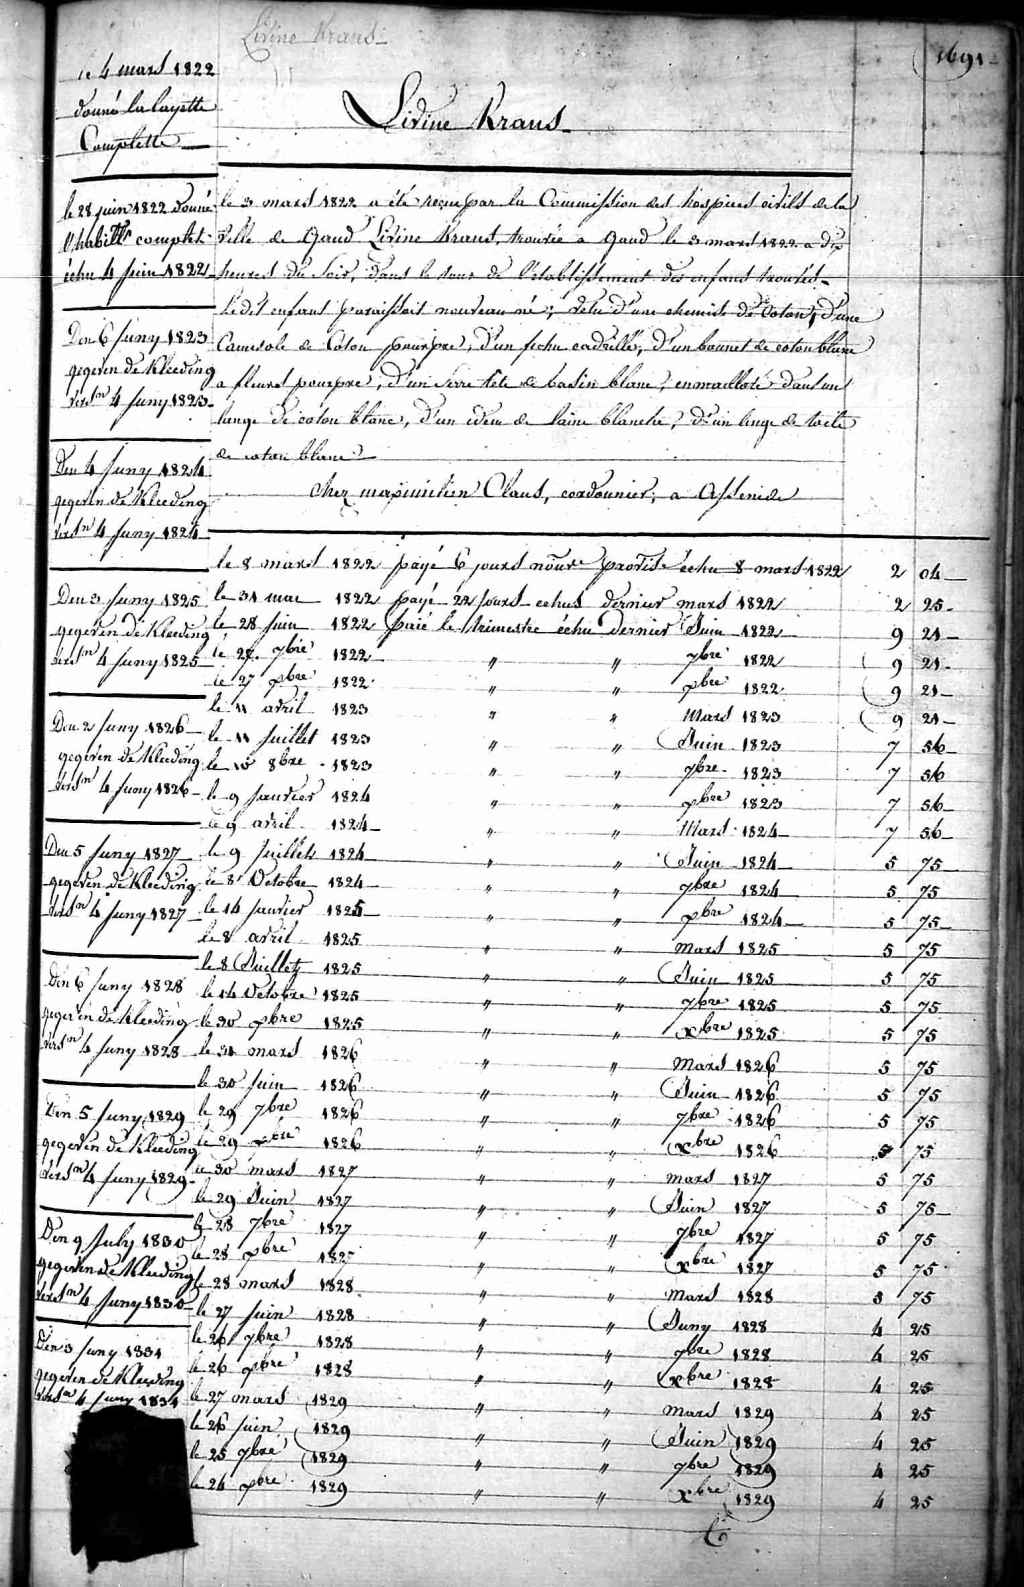 Livine Kraus
1691
le 4 mars 1822
donné la layette
Complette
Livine Kraus
le 28 juin 1822 donné
l'habillt complet
échu 4 juin 1822
Den 6 Juny 1823
gegeven de Kleeding
versn 4 Juny 1823
Den 4 Juny 1824
gegeven de Kleeding
versn 4 Juny 1824
Den 3 Juny 1825
gegeven de Kleeding
versn 4 Juny 1825
Den 2 Juny 1826
gegeven de Kleeding
versn 4 Juny 1826
Den 5 Juny 1827
gegeven de Kleeding
versn 4 Juny 1827
Den 6 Juny 1828
gegeven de Kleeding
versn 4 Juny 1828
Den 5 Juny 1829
gegeven de Kleeding
versn 4 Juny 1829
Den 9 July 1830
gegeven de Kleeding
versn 4 Juny 1830
Den 3 Juny 1831
gegeven de Kleeding
versn 4 Juny 1831
le 3 mars 1822 a été reçue par la Commission des hospices civils de la
Ville de Gand Livine Kraus, trouvée a Gand le 3 mars 1822 a dix
heures du Soir, dans le tour de l'établissement des enfans trouvés
le dit enfant paraissoit nouveau né; vetu d'une chemise de coton, d'une
Camesole de Coton pourpre, d'un fichu cadrillé, d'un bonnet de coton blanc
a fleurs pourpre, d'un Serre tête de basin blanc, enmaillotée dans un
lange de coton blanc, d'un idem de laine blanche, d'un linge de toile
de coton blanc
chez maximilien Claus, cordounier, a Assenede
le 8 mars 1822 payé 6 jours nourre provise échu 8 mars 1822 2 04
le 31 mai 1822 payé 22 jours echus dernier mars 1822 2 25
le 28 juin 1822 paié le trimestre échu dernier Juin 1822 9 21
le 27 7bre 1822 " " 7bre 1822 9 21
le 27 xbre 1822 " " xbre 1822 9 21
le 11 avril 1823 " " Mars 1823 9 21
le 11 Juillet 1823 " " Juin 1823 7 56
le 10 8bre 1823 " " 7bre 1823 7 56
le 9 Janvier 1824 " " xbre 1823 7 56
le 9 avril 1824 " " Mars 1824 7 56
le 9 Juillets 1824 " " Juin 1824 5 75
le 8 Octobre 1824 " " 7bre 1824 5 75
le 14 Janvier 1825 " " xbre 1824 5 75
le 8 avril 1825 " " mars 1825 5 75
le 8 Juillet 1825 " " Juin 1825 5 75
le 14 Octobre 1825 " " 7bre 1825 5 75
le 30 xbre 1825 " " xbre 1825 5 75
le 31 mars 1826 " " Mars 1826 5 75
le 30 Juin 1826 " " Juin 1826 5 75
le 29 7bre 1826 " " 7bre 1826 5 75
le 29 xbre 1826 " " xbre 1826 5 75
le 30 mars 1827 " " mars 1827 5 75
le 29 Juin 1827 " " Juin 1827 5 75
le 28 7bre 1827 " " 7bre 1827 5 75
le 28 xbre 1827 " " xbre 1827 5 75
le 28 mars 1828 " " Mars 1828 5 75
le 27 Juin 1828 " " Juny 1828 4 25
le 26 7bre 1828 " " 7bre 1828 4 25
le 26 xbre 1828 " " xbre 1828 4 25
le 27 mars 1829 " " mars 1829 4 25
le 26 Juin 1829 " " Juin 1829 4 25
le 25 7bre 1829 " " 7bre 1829 4 25
le 24 xbre 1829 " " xbre 1829 4 25